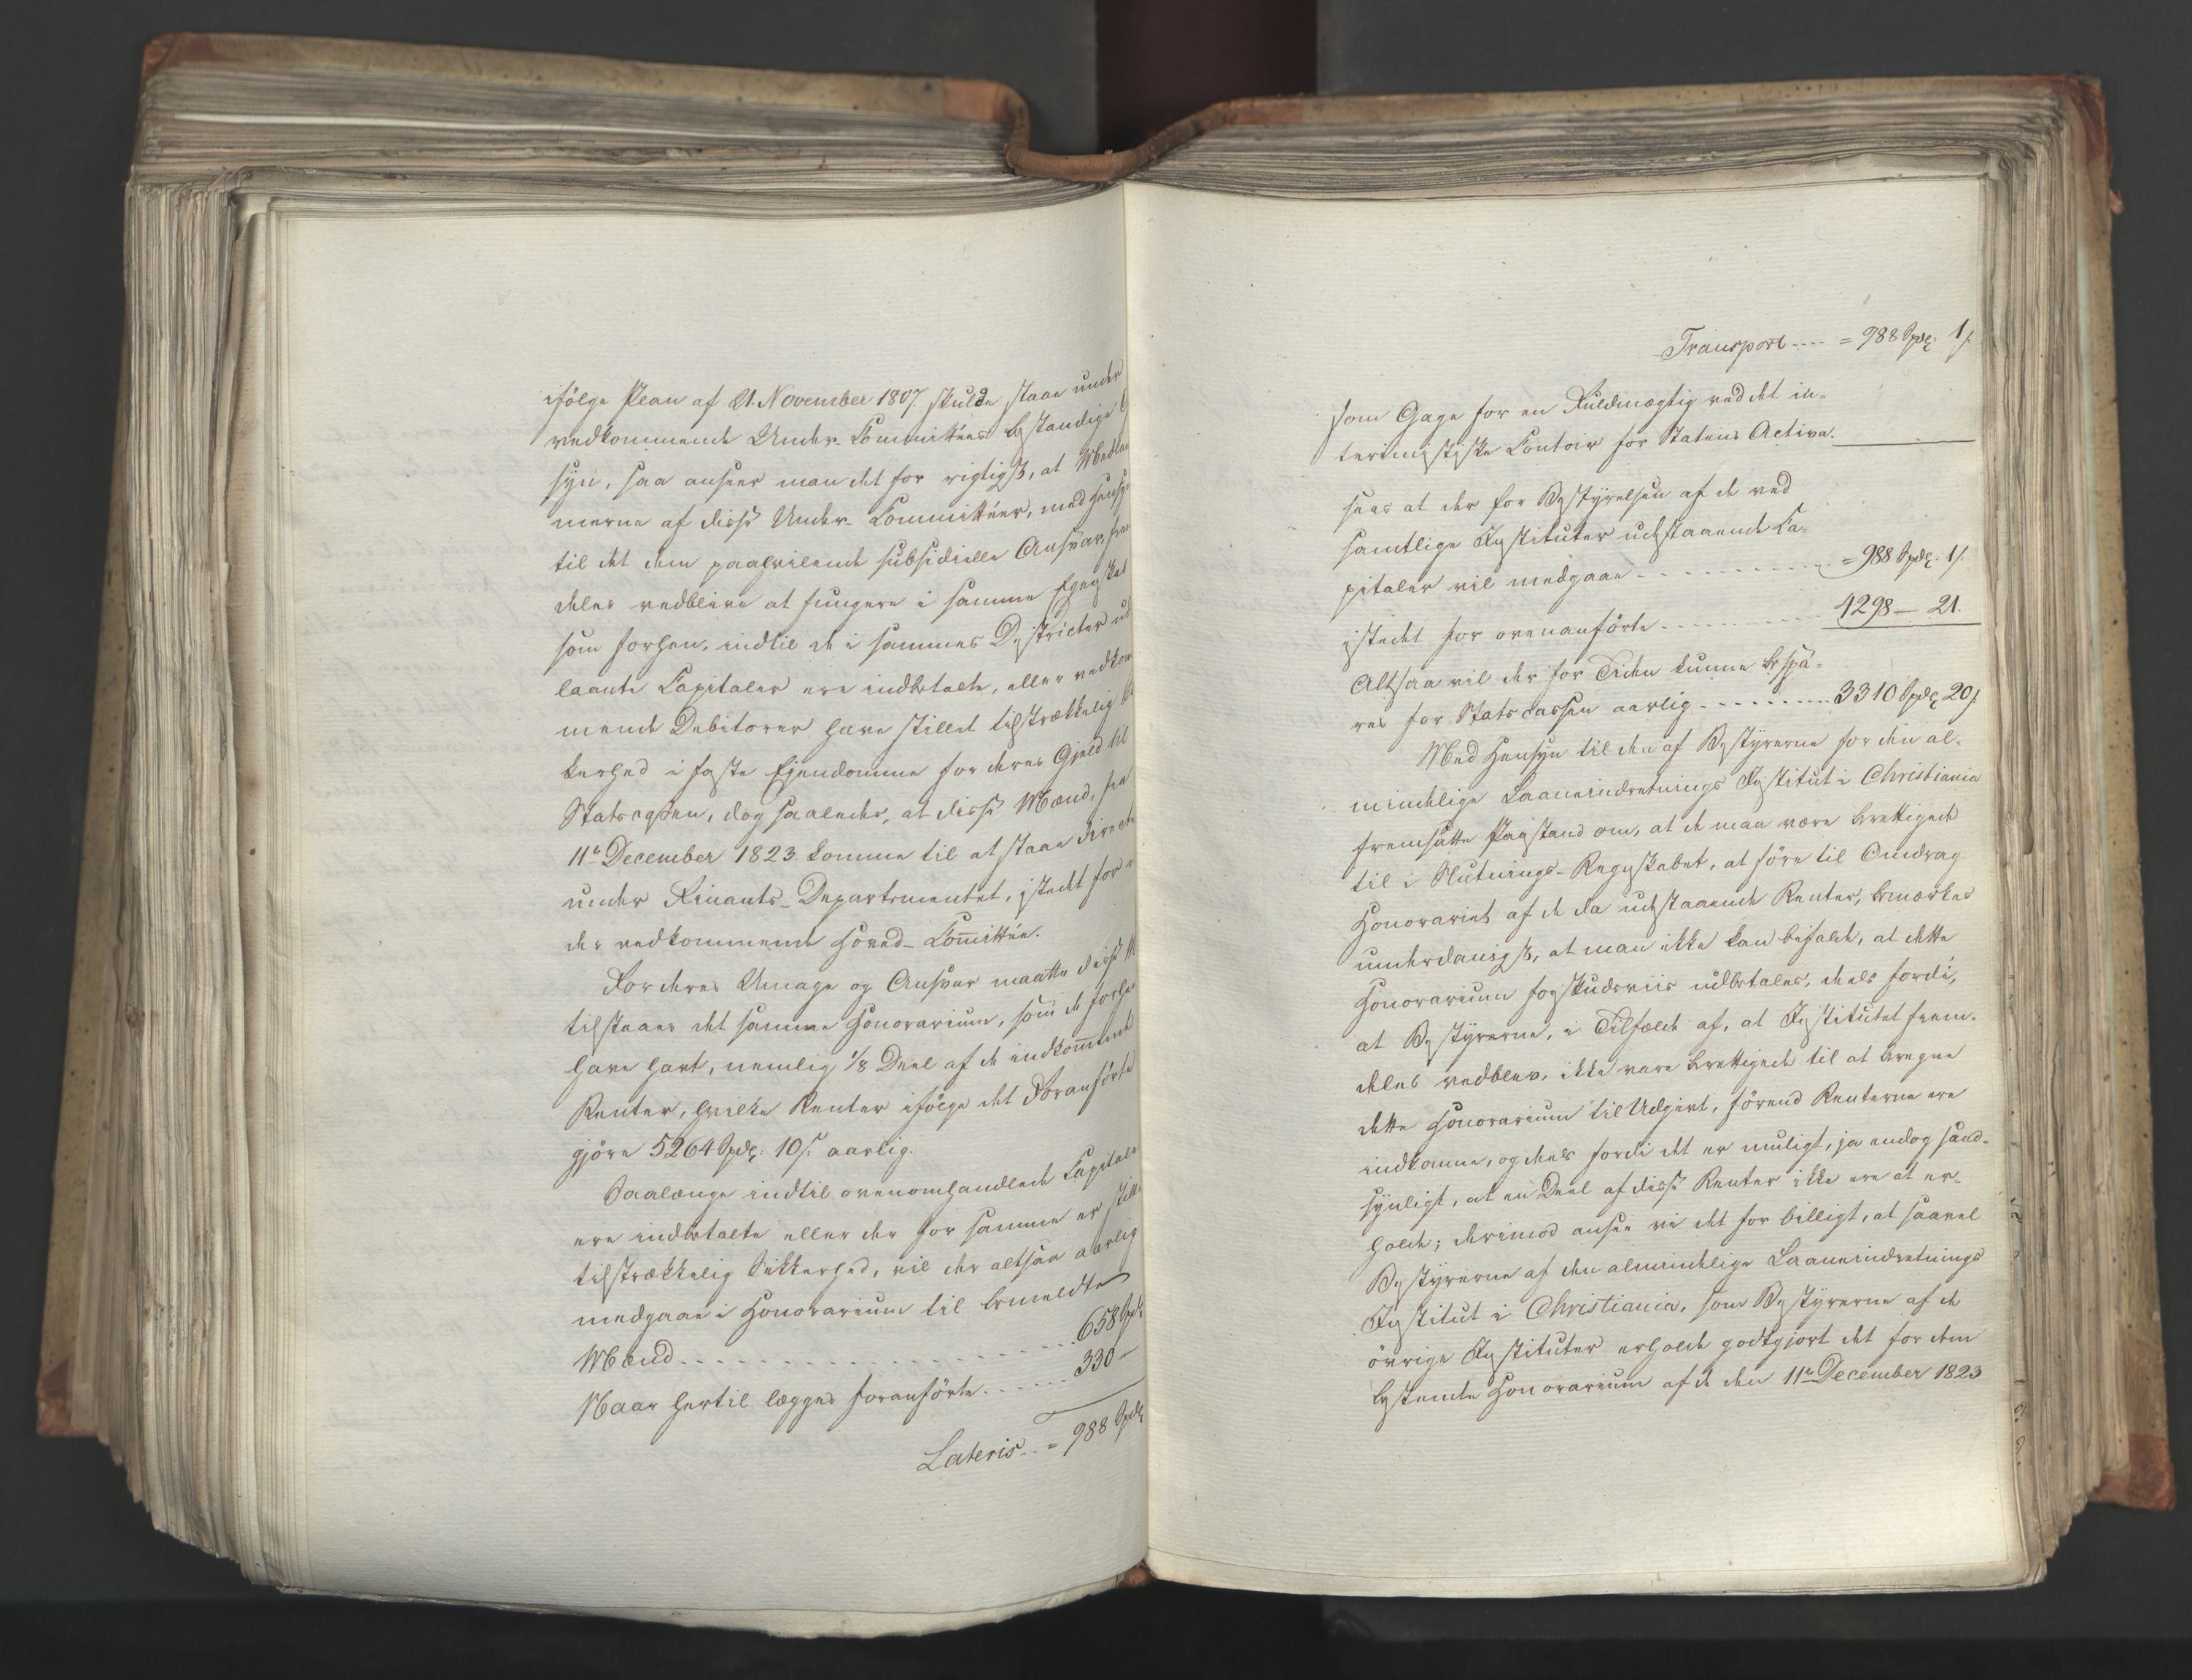 ifölge Plan af 21. November 1807. skulde staae under
vedkommende Under-Committéers bestandige
syn, saa anseer man det for rigtigst, at Medlem
merne af disse Under-Committéer, med Hensyn
til det dem paahvilende subsidielle Ansvar, frem
deles vedblive at fungere i samme Egenskab
som forhen, indtil de i sammes Districter ud
laante Capitaler ere indbetalte, eller vedkom
mende Debitorer have stillet tilstrækkelig
kerhed i faste Ejendomme for deres Gjeld til
Statscassen, dog saaledes, at disse Mænd, fra
11te December 1823. komme til at staae directe
under Finants-Departementet, istedet for
der vedkommende Hoved-Committée.
For deres Umage og Ansvar maatte disse
tilstaaes det samme Honorarium, som de forhen
have havt, nemlig 1/8 Deel af de indkommende
Renter, hvilke Renter ifölge det Foranförte
gjöre 5264 Spdr: 10 s. aarlig.
Saalænge indtil ovenomhandlede Capitaler
ere indbetalte eller der for samme er stillet
tilstrækkelig Sikkerhed, vil der altsaa aarlig
medgaae i Honorarium til bemeldte
Mænd - - - - - - 658 Spdr
Naar hertil lægges foranförte - - - - 330 —
Lateris - - = 988 Spdr
Transport - - - - = 988 Spdr: 1 s.
som Gage for en Fuldmægtig ved det in-
terimistiske Contoir for Statens Activa.
sees at der for Bestyrelsen af de ved
samtlige Instituter udestaaende Ca-
pitaler vil medgaae - - - - - - = 988 Spdr: 1 s.
istedet for ovenanförte - - - - - - 4298 — 21.
Altsaa vil der for Tiden kunne bespa-
res for Statscassen aarlig - - - - - - 3310 Spdr 20 s
Med Hensyn til den af Bestyrerne for den al-
mindelige Laaneindretnings Institut i Christiania
fremsatte Paastand om, at de maa være berettigede
til i Slutnings-Regnskabet, at före til Omdrag
Honorariet af de da udestaaende Renter, bemærkes
underdanigst, at man ikke kan bifalde, at dette
Honorarium forskudsviis udbetales, deels fordi,
at Bestyrerne, i Tilfælde af, at Institutet frem-
deles vedblev, ikke vare berettigede til at beregne
dette Honorarium til Udgivt, förend Renterne ere
indkomne, og deels fordi det er muligt, ja endog sand-
synligt, at en Deel af disse Renter ikke ere at er-
holde; derimod ansee vi det for billigt, at saavel
Bestyrerne af den almindelige Laaneindretnings
Institut i Christiania, som Bestyrerne af de
övrige Instituter erholde godtgjort det for dem
bestemte Honorarium af de den 11te December 1823